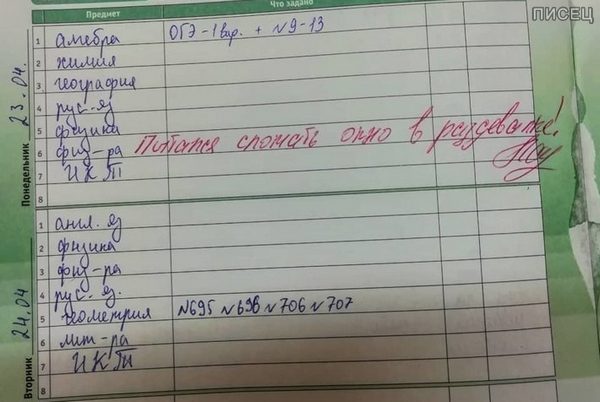 ПИСЕЦ
Предмет Что задано
Понедельник 23.04.
1 алгебра ОГЭ-1 вар. + №9-13
2 химия
3 география
4 рус. яз
5 физика
6 физ-ра Питался сломать окно в раздевалке!
7 ИКТ
8
Вторник 24.04
1 англ. яз
2 физика
3 физ-ра
4 рус. яз.
5 геометрия №695 №696 №706 №707
6 лит-ра
7 ИКТ
8